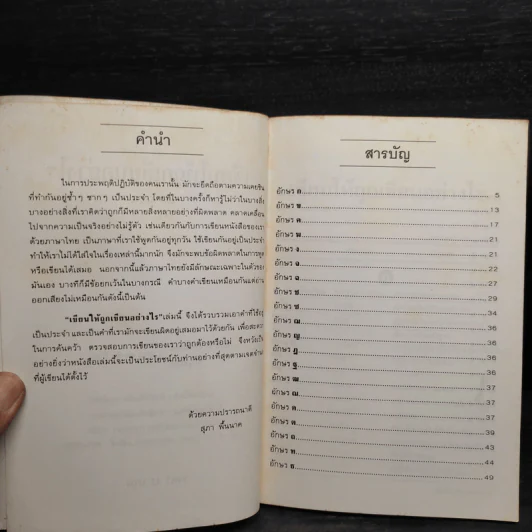 คำนำ
ในการประพฤติปฏิบัติของคนเรานั้น มักจะยึดถือตามความเคยชิน
ที่ทำกันอยู่ซ้ำๆ ซากๆ เป็นประจำ โดยที่ในบางครั้งก็หารู้ไม่ว่าในบางสิ่ง
บางอย่างสิ่งที่เราคิดว่าถูกก็มีหลายสิ่งหลายอย่างที่ผิดพลาด คลาดเคลื่อน
ไปจากความเป็นจริงอย่างไม่รู้ตัว เช่นเดียวกันกับการเขียนหนังสือของเรา
ด้วยภาษาไทย เป็นภาษาที่เราใช้พูดกันอยู่ทุกวัน ใช้เขียนกันอยู่เป็นประจำ
ทำให้เราไม่ได้ใส่ใจในเรื่องเหล่านี้มากนัก จึงมักจะพบข้อผิดพลาดในการพูด
หรือเขียนได้เสมอ นอกจากนี้แล้วภาษาไทยยังมีลักษณะเฉพาะในตัวของ
มันเอง บางทีก็มีข้อยกเว้นในบางกรณี คำบางคำเขียนเหมือนกันแต่อ่าน
ออกเสียงไม่เหมือนกันดังนี้เป็นต้น
"เขียนให้ถูกเขียนอย่างไร" เล่มนี้ จึงได้รวบรวมเอาคำที่ใช้อยู่
เป็นประจำ และเป็นคำที่เรามักจะเขียนผิดอยู่เสมอมาไว้ด้วยกัน เพื่อสะดวก
ในการค้นคว้า ตรวจสอบการเขียนของเราว่าถูกต้องหรือไม่ จึงหวังเป็น
อย่างยิ่งว่าหนังสือเล่มนี้จะเป็นประโยชน์กับท่านอย่างที่สุดตามเจตจำนง
ที่ผู้เขียนได้ตั้งไว้
ด้วยความปรารถนาดี
สุภา พื้นนาค
สารบัญ
อักษร ก 5
อักษร ข 13
อักษร ค 17
อักษร ฆ 21
อักษร ง 21
อักษร จ 22
อักษร ฉ 27
อักษร ช 29
อักษร ซ 34
อักษร ฌ 36
อักษร ญ 36
อักษร ฎ 36
อักษร ฐ 36
อักษร ฒ 37
อักษร ณ 37
อักษร ด 37
อักษร ต 39
อักษร ถ 43
อักษร ท 44
อักษร ธ 49